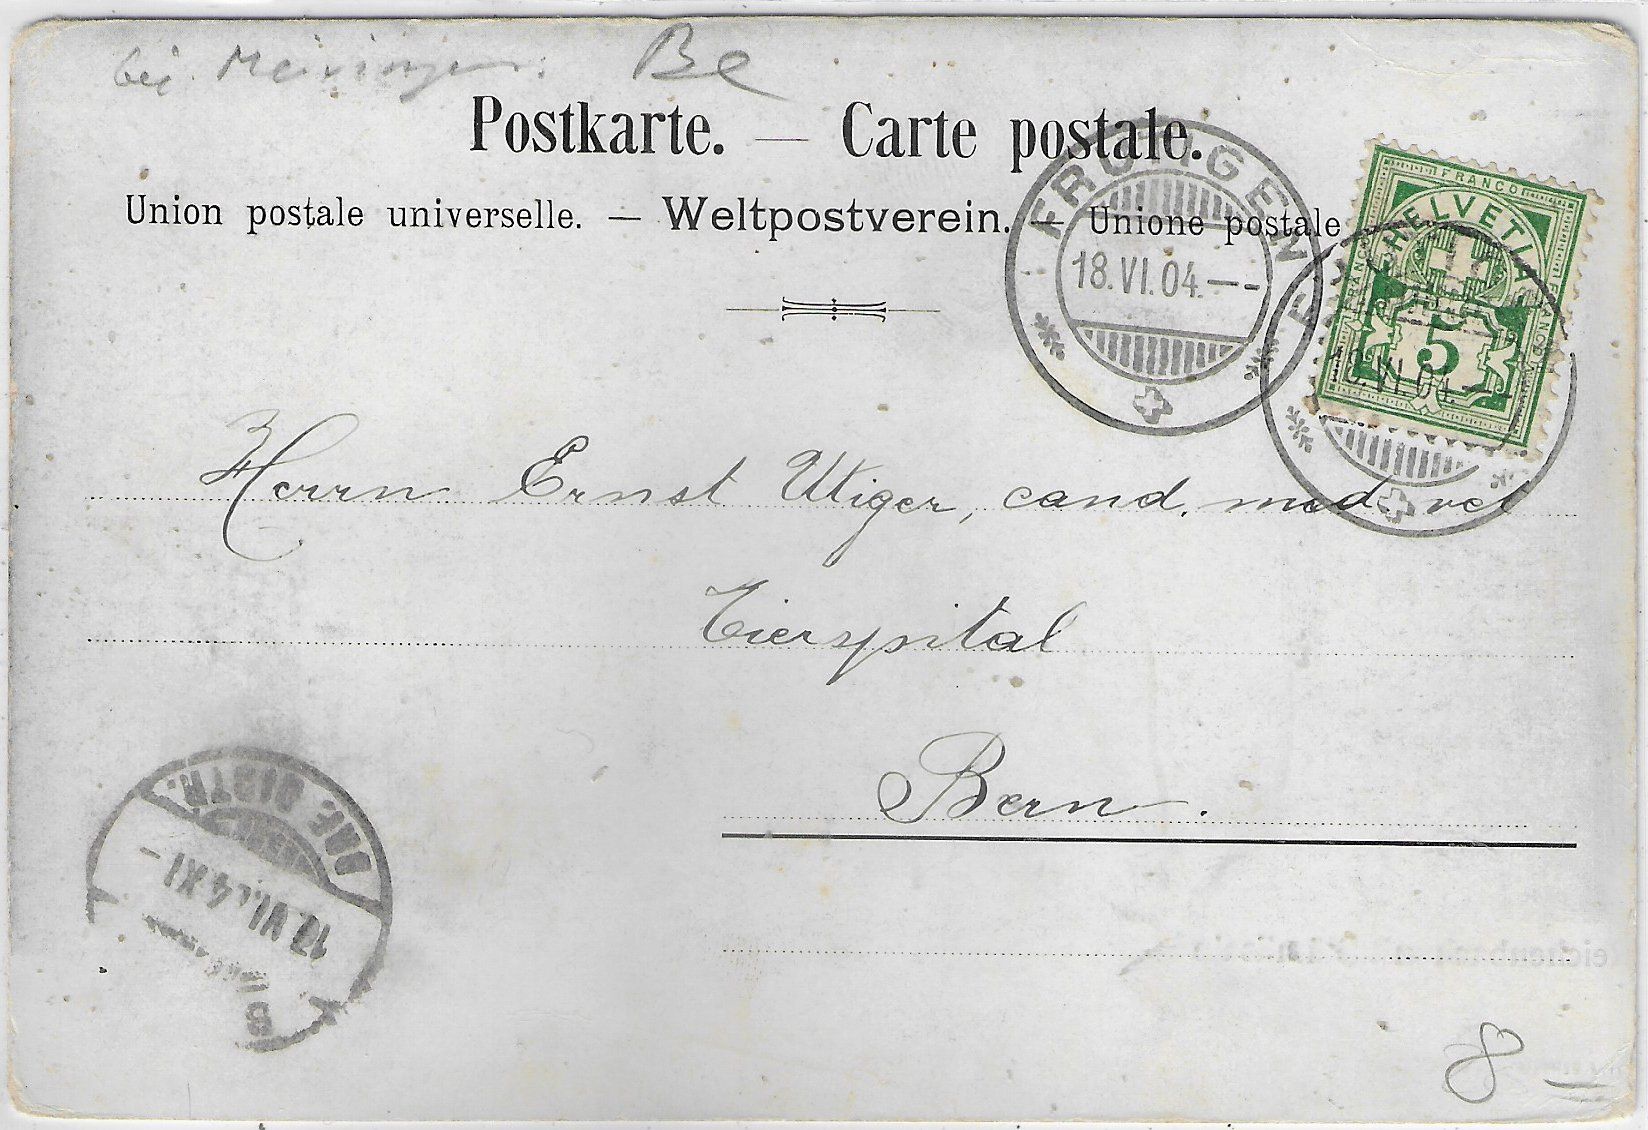 bei Meiringen. Be
Postkarte. — Carte postale.
Union postale universelle. — Weltpostverein. — Unione postale
FRUTIGEN
18.VI.04.—
FRANCO
HELVETIA
FRANCO
FRANCO
5
18.VI.04.—
Herrn Ernst Utiger, cand. med. vet
Tierspital
Bern.
BRF. DISTR.
XI—
B
8 —